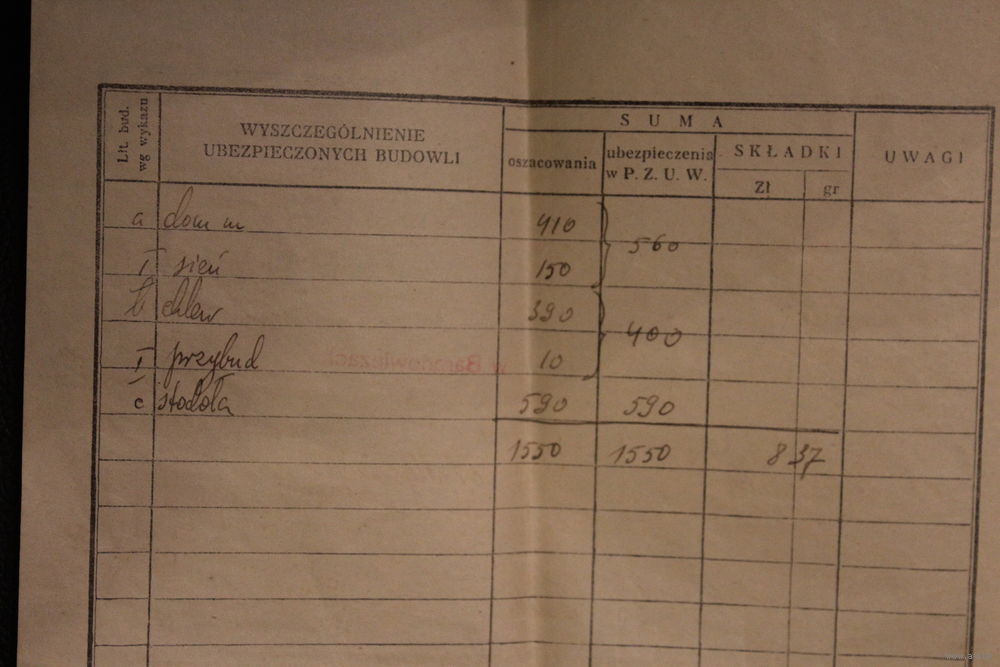 Lit. bud. wg wykazu
WYSZCZEGÓLNIENIE
UBEZPIECZONYCH BUDOWLI
SUMA
oszacowania
ubezpieczenia
w P. Z. U. W.
SKŁADKI
Zł gr
UWAGI
a dom m 410
560
I sień 150
b chlew 390
400
I przybud 10
c stodoła 590 590
1550 1550 8 37
w Baranowiczach